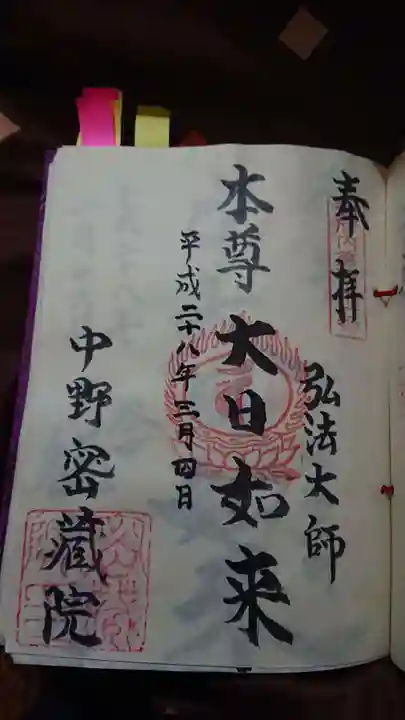 奉拝
弘法大師
本尊 大日如来
平成二十八年三月四日
中野密蔵院